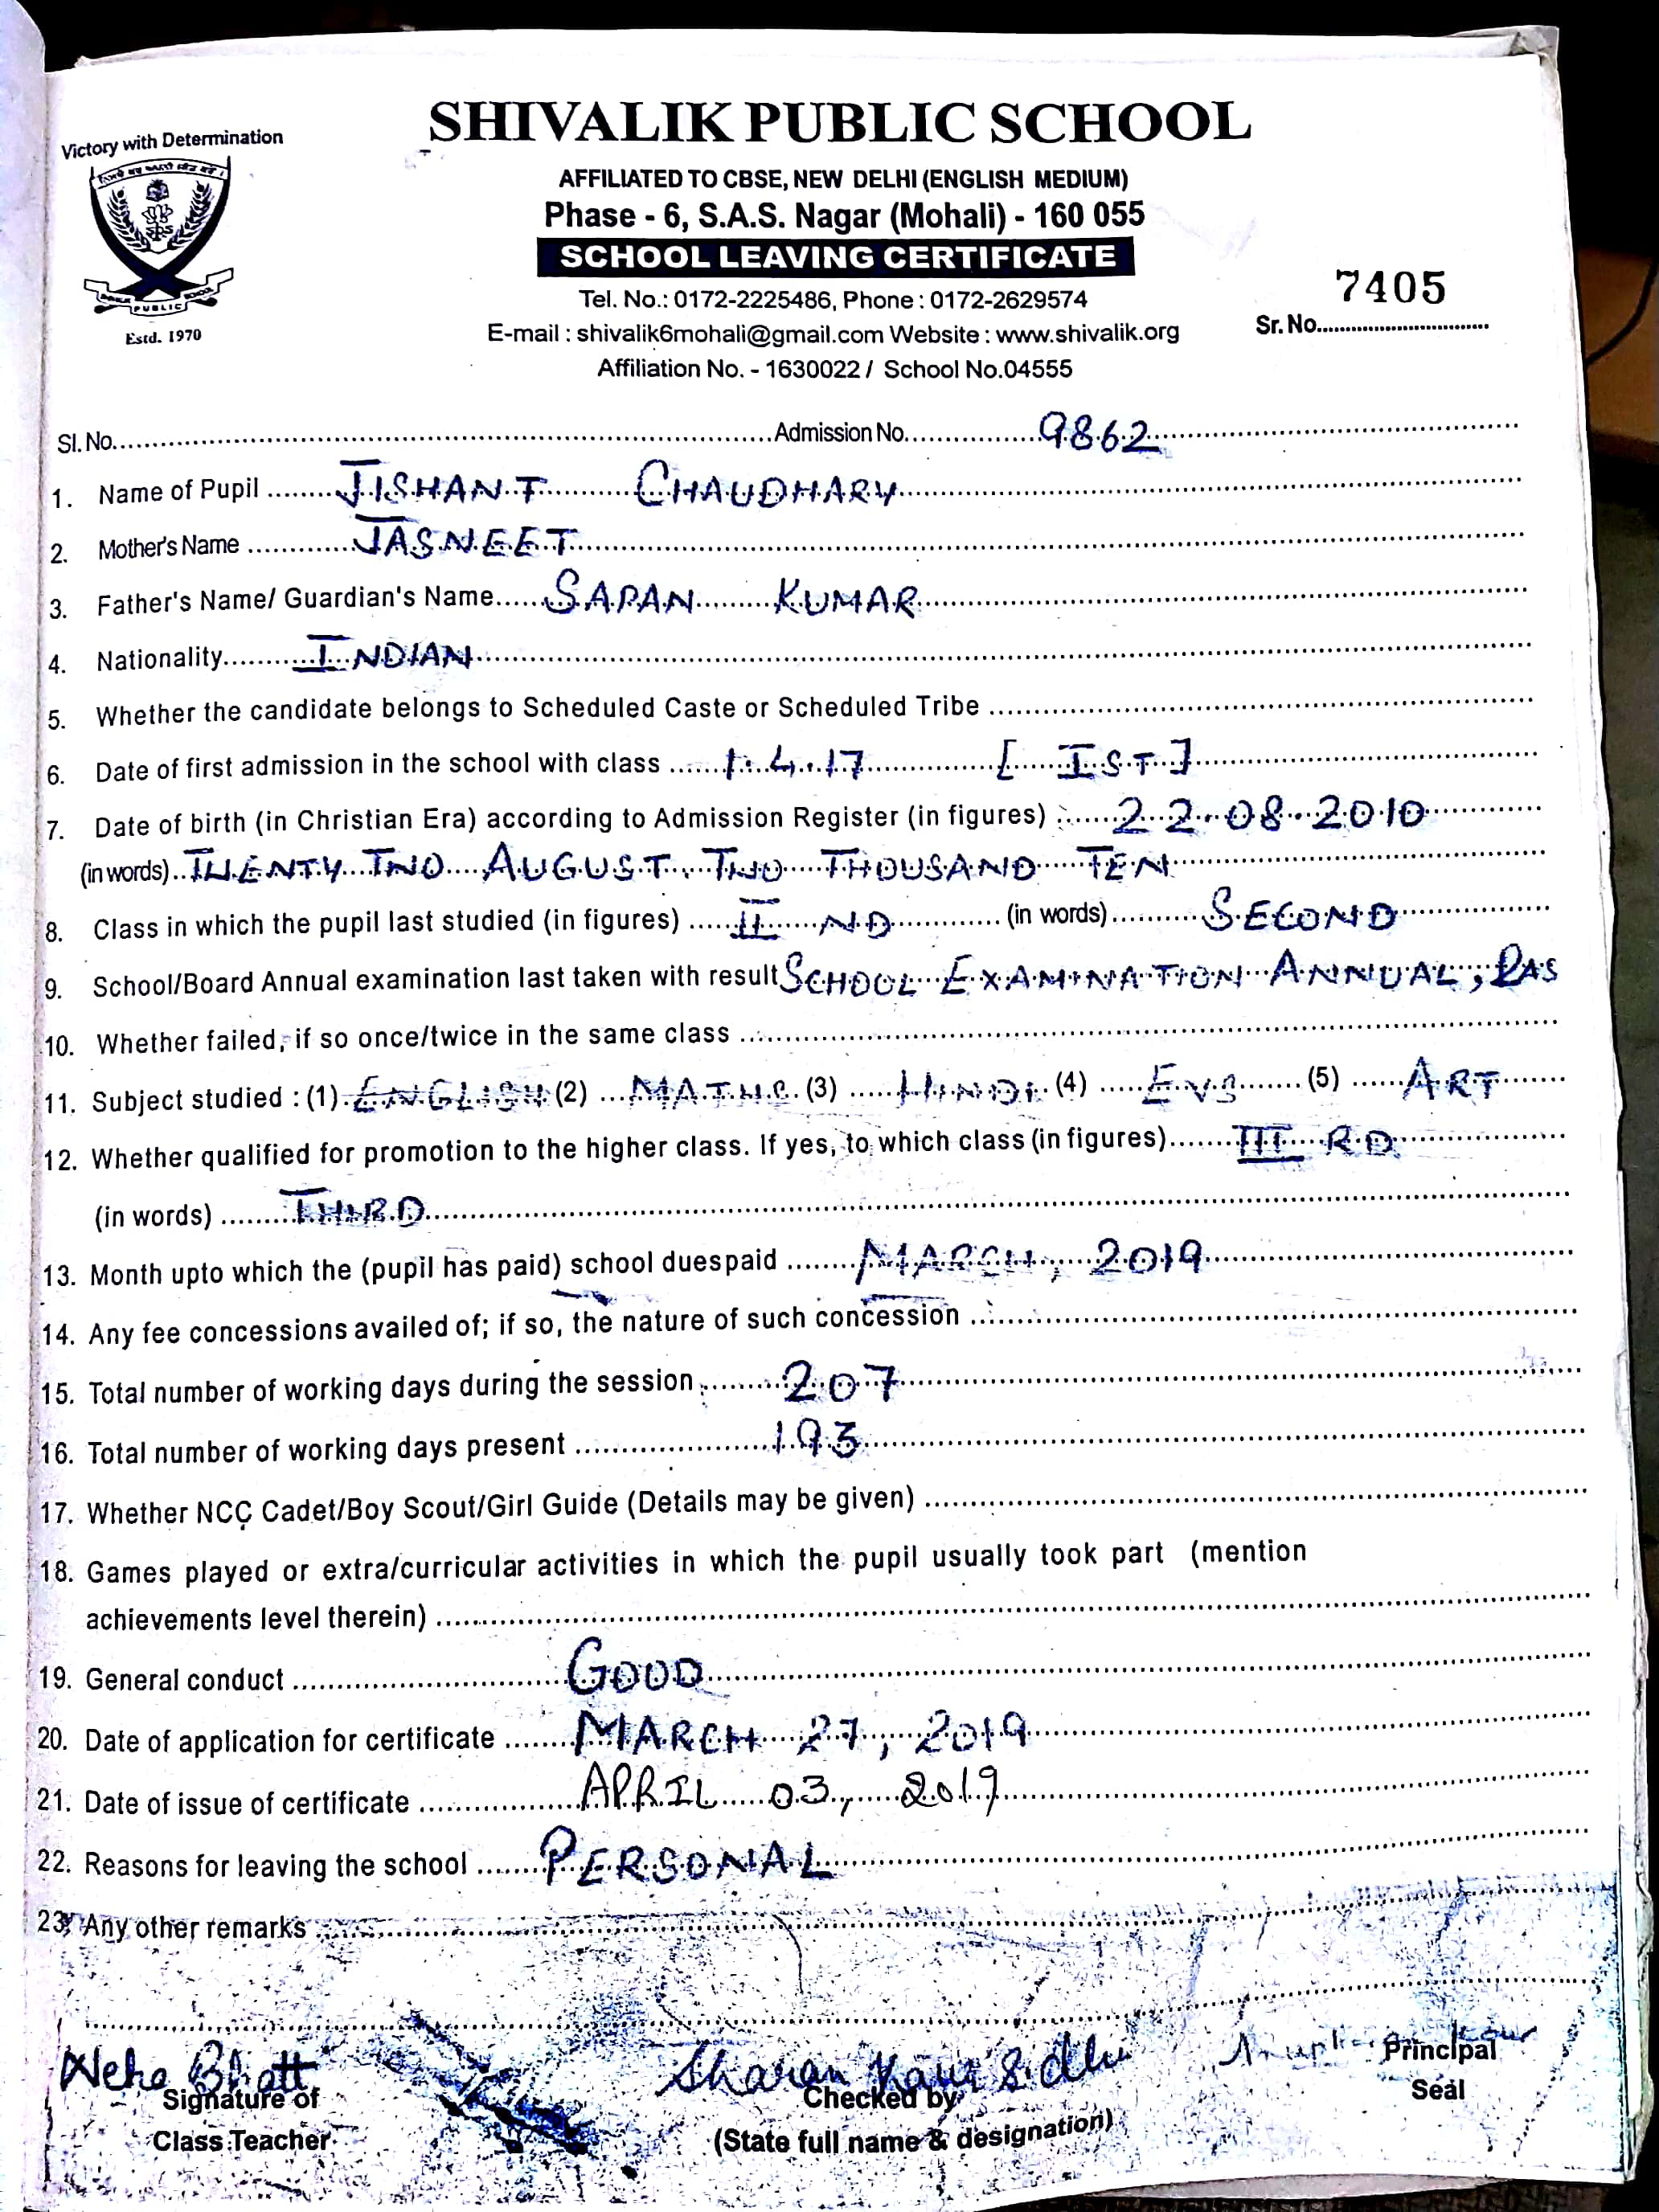 Victory with Determination
SHIVALIK PUBLIC SCHOOL
AFFILIATED TO CBSE, NEW DELHI (ENGLISH MEDIUM)
Phase - 6, S.A.S. Nagar (Mohali) - 160 055
SCHOOL LEAVING CERTIFICATE
Tel. No.: 0172-2225486, Phone : 0172-2629574
E-mail : shivalik6mohali@gmail.com Website : www.shivalik.org
Affiliation No. - 1630022 / School No.04555
PUBLIC
Estd. 1970
7405
Sr. No.
Sl. No. Admission No. 9862
1. Name of Pupil JISHANT CHAUDHARY
2. Mother's Name JASNEET
3. Father's Name/ Guardian's Name SAPAN KUMAR
4. Nationality INDIAN
5. Whether the candidate belongs to Scheduled Caste or Scheduled Tribe
6. Date of first admission in the school with class 1.4.17 [IST]
7. Date of birth (in Christian Era) according to Admission Register (in figures) : 22.08.2010
(in words) TWENTY TWO AUGUST TWO THOUSAND TEN
8. Class in which the pupil last studied (in figures) II ND (in words) SECOND
9. School/Board Annual examination last taken with result SCHOOL EXAMINATION ANNUAL, PAS
10. Whether failed, if so once/twice in the same class
11. Subject studied : (1) ENGLISH (2) MATHS (3) HINDI (4) EVS (5) ART
12. Whether qualified for promotion to the higher class. If yes, to which class (in figures) III RD
(in words) THIRD
13. Month upto which the (pupil has paid) school duespaid MARCH, 2019
14. Any fee concessions availed of; if so, the nature of such concession
15. Total number of working days during the session 207
16. Total number of working days present 193
17. Whether NCC Cadet/Boy Scout/Girl Guide (Details may be given)
18. Games played or extra/curricular activities in which the pupil usually took part (mention
achievements level therein)
19. General conduct GOOD
20. Date of application for certificate MARCH 27, 2019
21. Date of issue of certificate APRIL 03, 2019
22. Reasons for leaving the school PERSONAL
23. Any other remarks
Neha Bhatt Sharan Kaur Sidhu
Signature of Checked by Principal
Class Teacher (State full name & designation) Seal